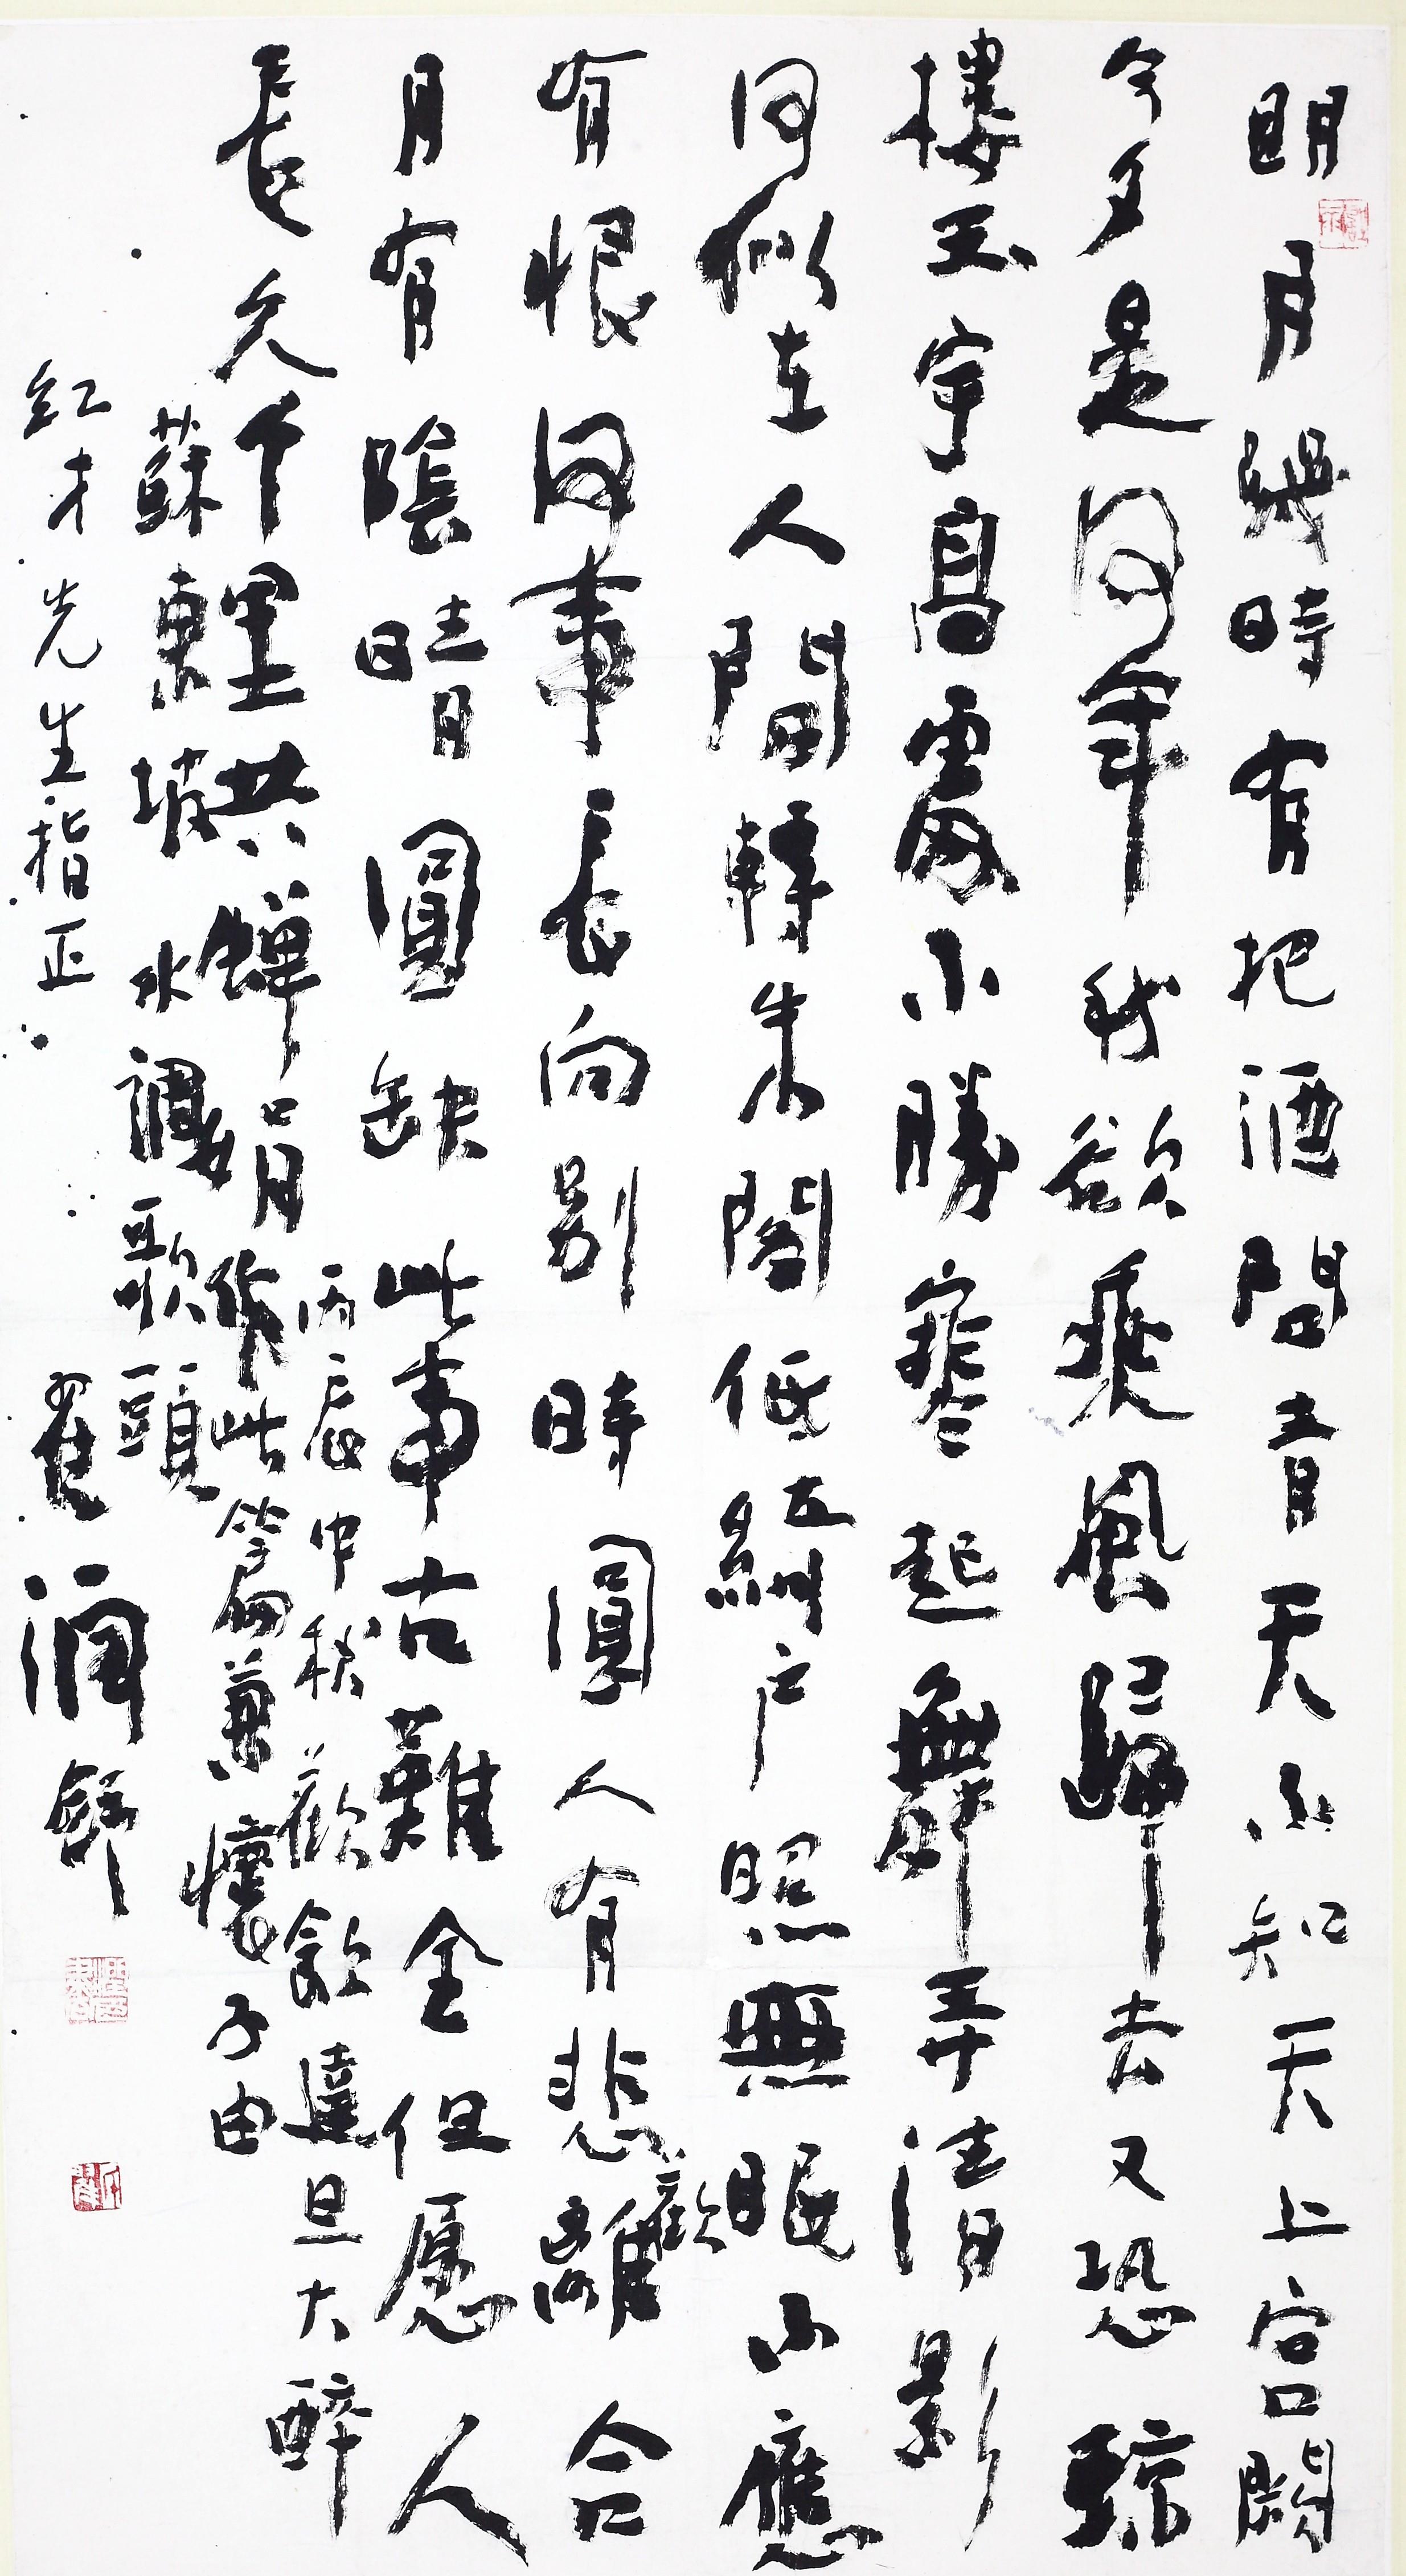 明月幾時有把酒問青天不知天上宮闕
今夕是何年我欲乘風歸去又恐瓊
樓玉宇高處不勝寒起舞弄清影
何似在人間轉朱閣低綺户照無眠不應
有恨何事長向別時圓人有悲歡離合
月有陰晴圓缺此事古難全但愿人
長久千里共嬋娟
丙辰中秋歡飲達旦大醉
作此篇兼懷子由
蘇東坡水調歌頭
紅才先生指正
翟润舒